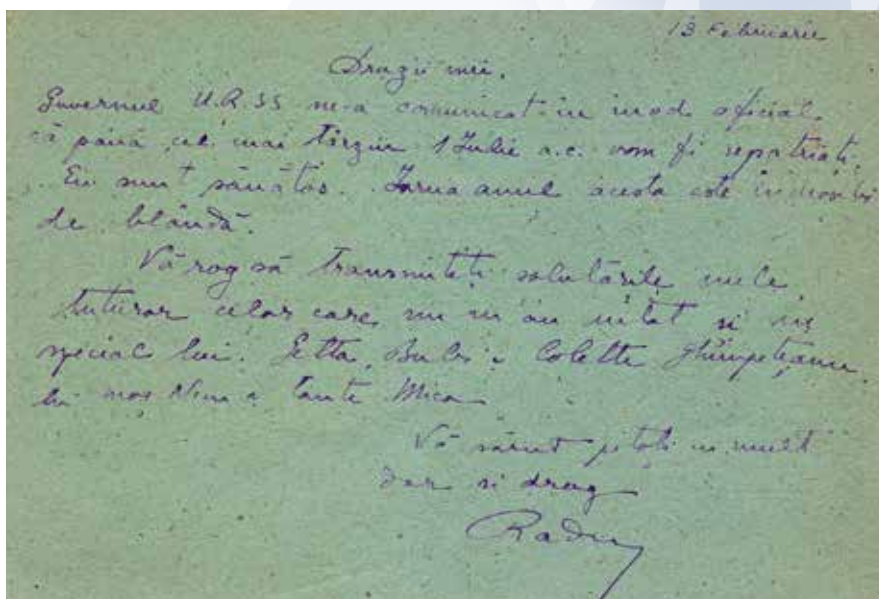 13 Februarie
Dragii mei,
Guvernul U.R.SS ne-a comunicat în mod oficial
că până cel mai târziu 1 Iulie a.c. vom fi repatriați.
Eu sunt sănătos. Iarna anul acesta este
de blândă.
Vă rog să transmiteți salutările mele
tuturor celor care nu m'au uitat și în
special lui: Getta, Colette Ghimpețeanu,
lui moș Nicu, tante Mica
Vă sărut pe toți cu mult
dor și drag
Radu